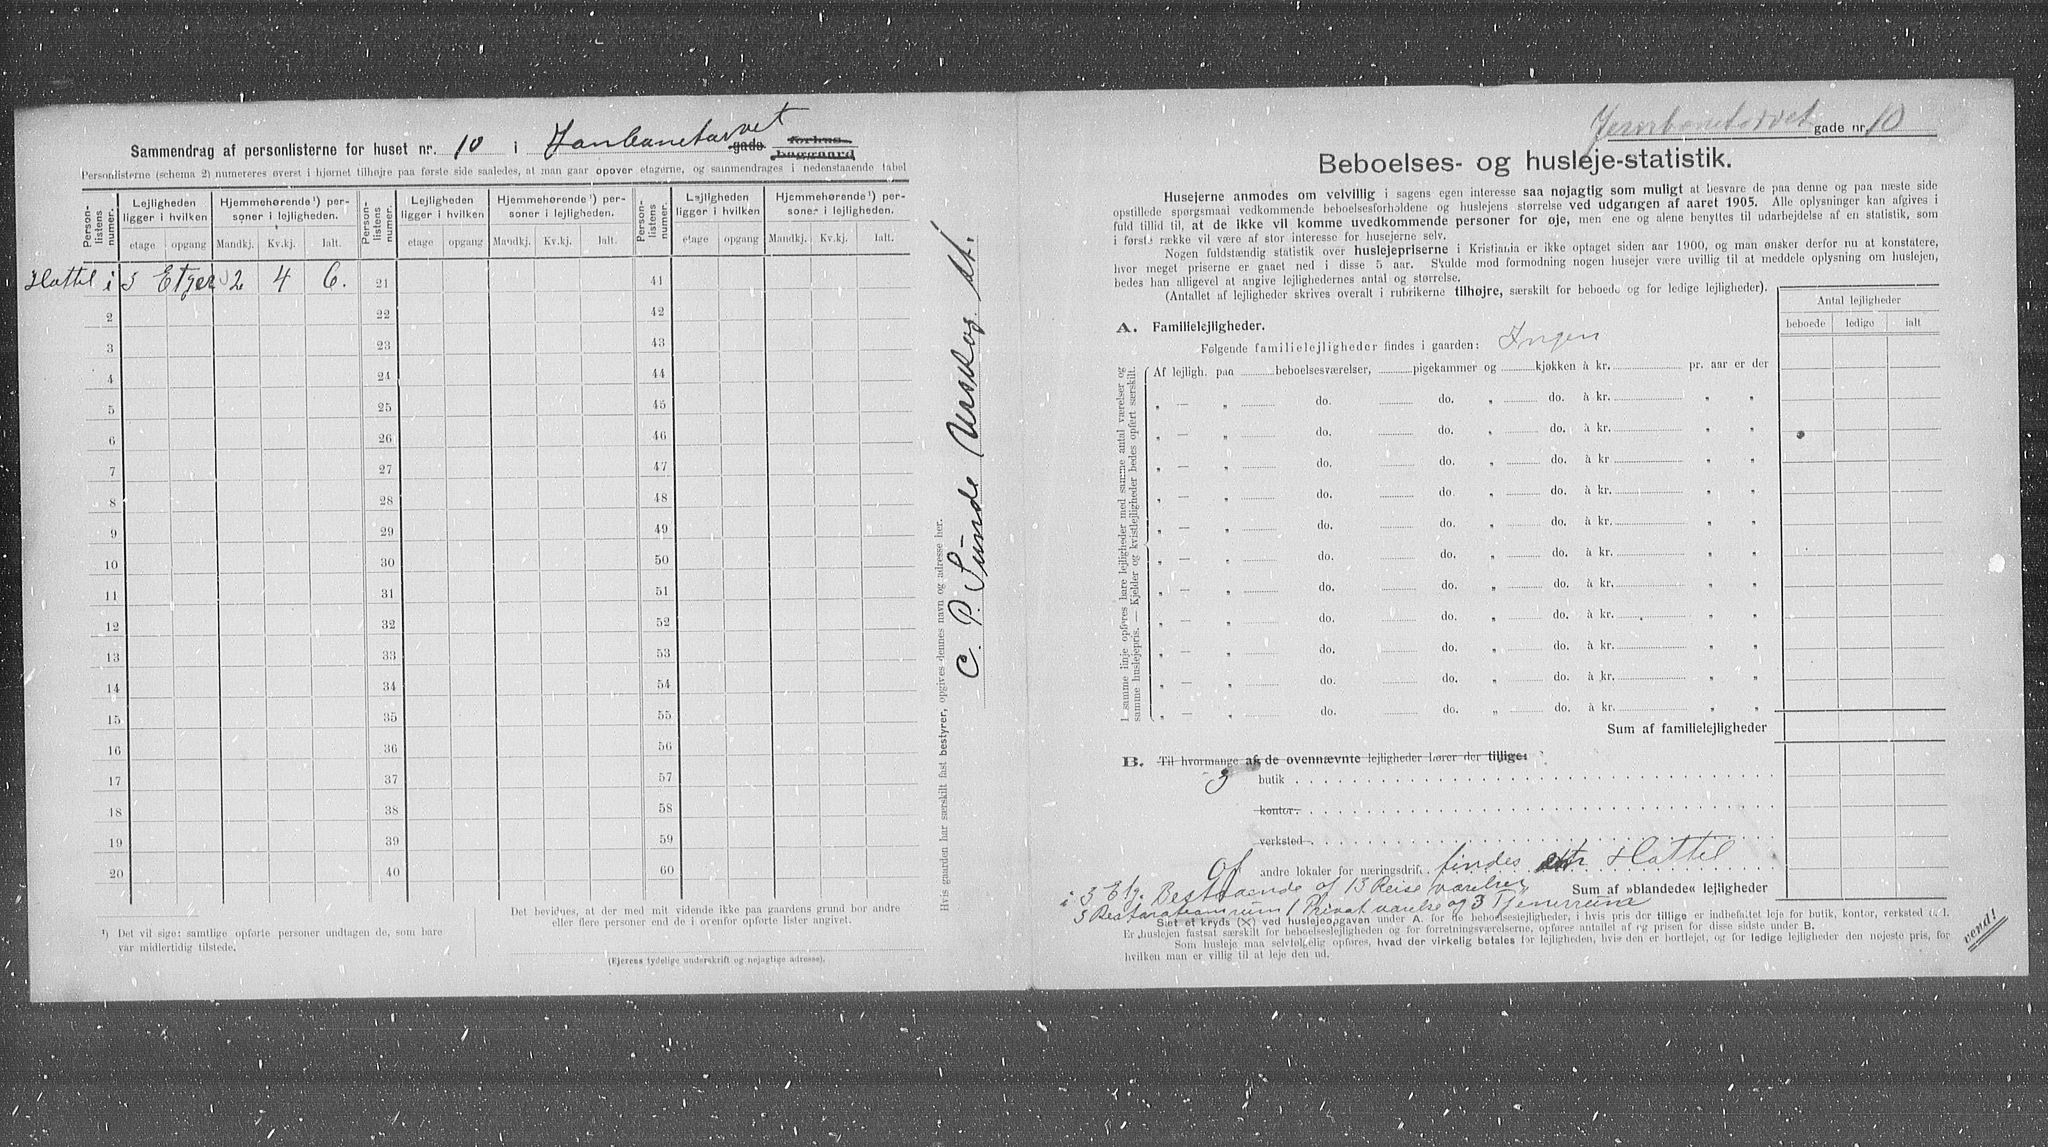 Sammendrag af personlisterne for huset nr. 10 i Jernbanetorvet gade forhus baggaard
Personlisterne (schema 2) numereres øverst i hjørnet tilhøjre paa første side saaledes, at man gaar opover etagerne, og sammendrages i nedenstaaende tabel
Person-listens numer.
Lejligheden ligger i hvilken
Hjemmehørende ¹) personer i lejligheden.
Person-listens numer.
Lejligheden ligger i hvilken
Hjemmehørende ¹) personer i lejligheden.
Person-listens numer.
Lejligheden ligger i hvilken
Hjemmehørende ¹) personer i lejligheden.
etage opgang Mandkj. Kv.kj. Ialt. etage opgang Mandkj. Kv.kj. Ialt. etage opgang Mandkj. Kv.kj. Ialt.
Hottel i 3 Etger 2 4 6. 21 41
2 22 42
3 23 43
4 24 44
5 25 45
6 26 46
7 27 47
8 28 48
9 29 49
10 30 50
11 31 51
12 32 52
13 33 53
14 34 54
15 35 55
16 36 56
17 37 57
18 38 58
19 39 59
20 40 60
¹) Det vil sige: samtlige opførte personer undtagen de, som bare
var midlertidig tilstede.
Det bevidnes, at der med mit vidende ikke paa gaardens grund bor andre
eller flere personer end de i ovenfor opførte lister angivet.
(Ejerens tydelige underskrift og nøjagtige adresse).
Hvis gaarden har særskilt fast bestyrer, opgives dennes navn og adresse her.
C. P. Sunde Urskog St.
Jernbanetorvet gade nr. 10
Beboelses- og husleje-statistik.
Husejerne anmodes om velvillig i sagens egen interesse saa nøjagtig som muligt at besvare de paa denne og paa næste side
opstillede spørgsmaal vedkommende beboelsesforholdene og huslejens størrelse ved udgangen af aaret 1905. Alle oplysninger kan afgives i
fuld tillid til, at de ikke vil komme uvedkommende personer for øje, men ene og alene benyttes til udarbejdelse af en statistik, som
i første række vil være af stor interesse for husejerne selv.
Nogen fuldstændig statistik over huslejepriserne i Kristiania er ikke optaget siden aar 1900, og man ønsker derfor nu at konstatere,
hvor meget priserne er gaaet ned i disse 5 aar. Skulde mod formodning nogen husejer være uvillig til at meddele oplysning om huslejen,
bedes han alligevel at angive lejlighedernes antal og størrelse.
(Antallet af lejligheder skrives overalt i rubrikerne tilhøjre, særskilt for beboede og for ledige lejligheder).
Antal lejligheder
beboede ledige ialt
A. Familielejligheder.
Følgende familielejligheder findes i gaarden: Ingen
I samme linje opføres bare lejligheder med samme antal værelser og
samme huslejepris. — Kjelder og kvistlejligheder bedes opført særskilt.
Af lejligh. paa beboelsesværelser, pigekammer og kjøkken à kr. pr. aar er der
„ — „ do. do. „ do. à kr. „ „
„ — „ do. do. „ do. à kr. „ „
„ — „ do. do. „ do. à kr „ „
„ — „ do. do. „ do. à kr. „ „
„ — „ do. do. „ do. à kr. „ „
„ — „ do. do. „ do. à kr. „ „
„ — „ do. do. „ do. à kr. „ „
„ — „ do. do. „ do. à kr. „ „
„ — „ do. do. „ do. à kr. „ „
„ — „ do. do. „ do. à kr. „ „
„ — „ do. do. „ do. à kr. „ „
Sum af familielejligheder
B. Til hvormange af de ovennævnte lejligheder hører der tillige:
3 butik
kontor.
verksted
Of andre lokaler for næringsdrift. findes Hottel
i 3 Etg. Bestaaende of 13 Reise værelser Sum af »blandede« lejligheder
3 1 Privat værelse og 3
Sæt et kryds (×) ved huslejeopgaven under A. for de beboelseslejligheder, i hvis pris der tillige er indbefattet leje for butik, kontor, verksted o. l.
Er huslejen fastsat særskilt for beboelseslejligheden og for forretningsværelserne, opføres antallet af og prisen for disse sidste under B.
Som husleje maa selvfølgelig opføres, hvad der virkelig betales for lejligheden, hvis den er bortlejet, og for ledige lejligheder den nøjeste pris, for
hvilken man er villig til at leje den ud.
vend!